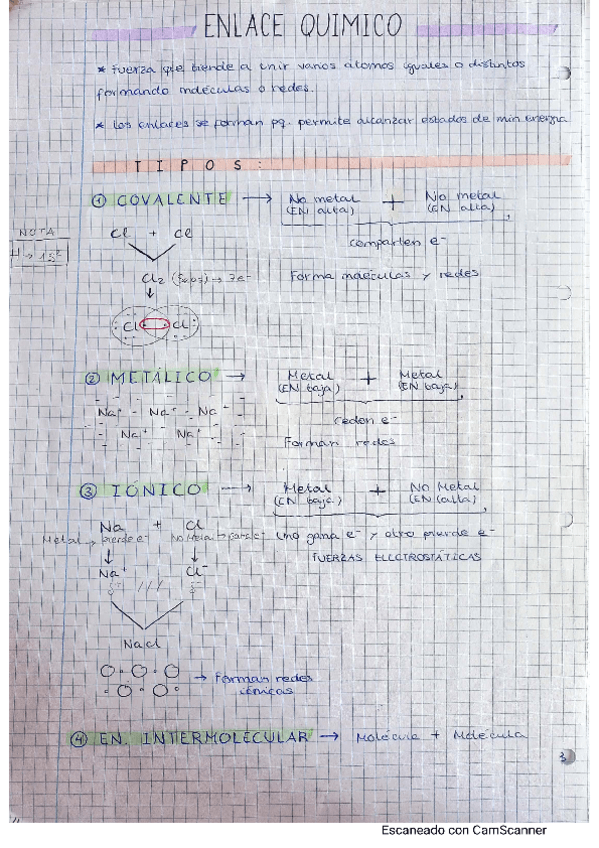 ENLACE QUIMICO
* Fuerza que tiende a unir varios atomos iguales o distintos
formando moléculas o redes.
* Los enlaces se forman pq. permite alcanzar estados de min energia
TIPOS:
① COVALENTE → No metal + No metal
(EN alta) (EN alta)
comparten e-
NOTA
H → 1s²
Cl + Cl
Cl₂ → 7e-
Forma moléculas y redes
Cl Cl
② METÁLICO → Metal + Metal
(EN baja) (EN baja)
ceden e-
Na⁺ - Na⁺ - Na⁺
Na⁺ Na⁺
Forman redes
③ IÓNICO → Metal + No Metal
(EN baja) (EN alta)
Na + Cl
Metal → pierde e-
Uno gana e- y otro pierde e-
Na⁺ Cl⁻
FUERZAS ELECTROSTÁTICAS
NaCl
→ Forman redes
iónicas
④ EN. INTERMOLECULAR → Molécula + Molécula
3
Escaneado con CamScanner